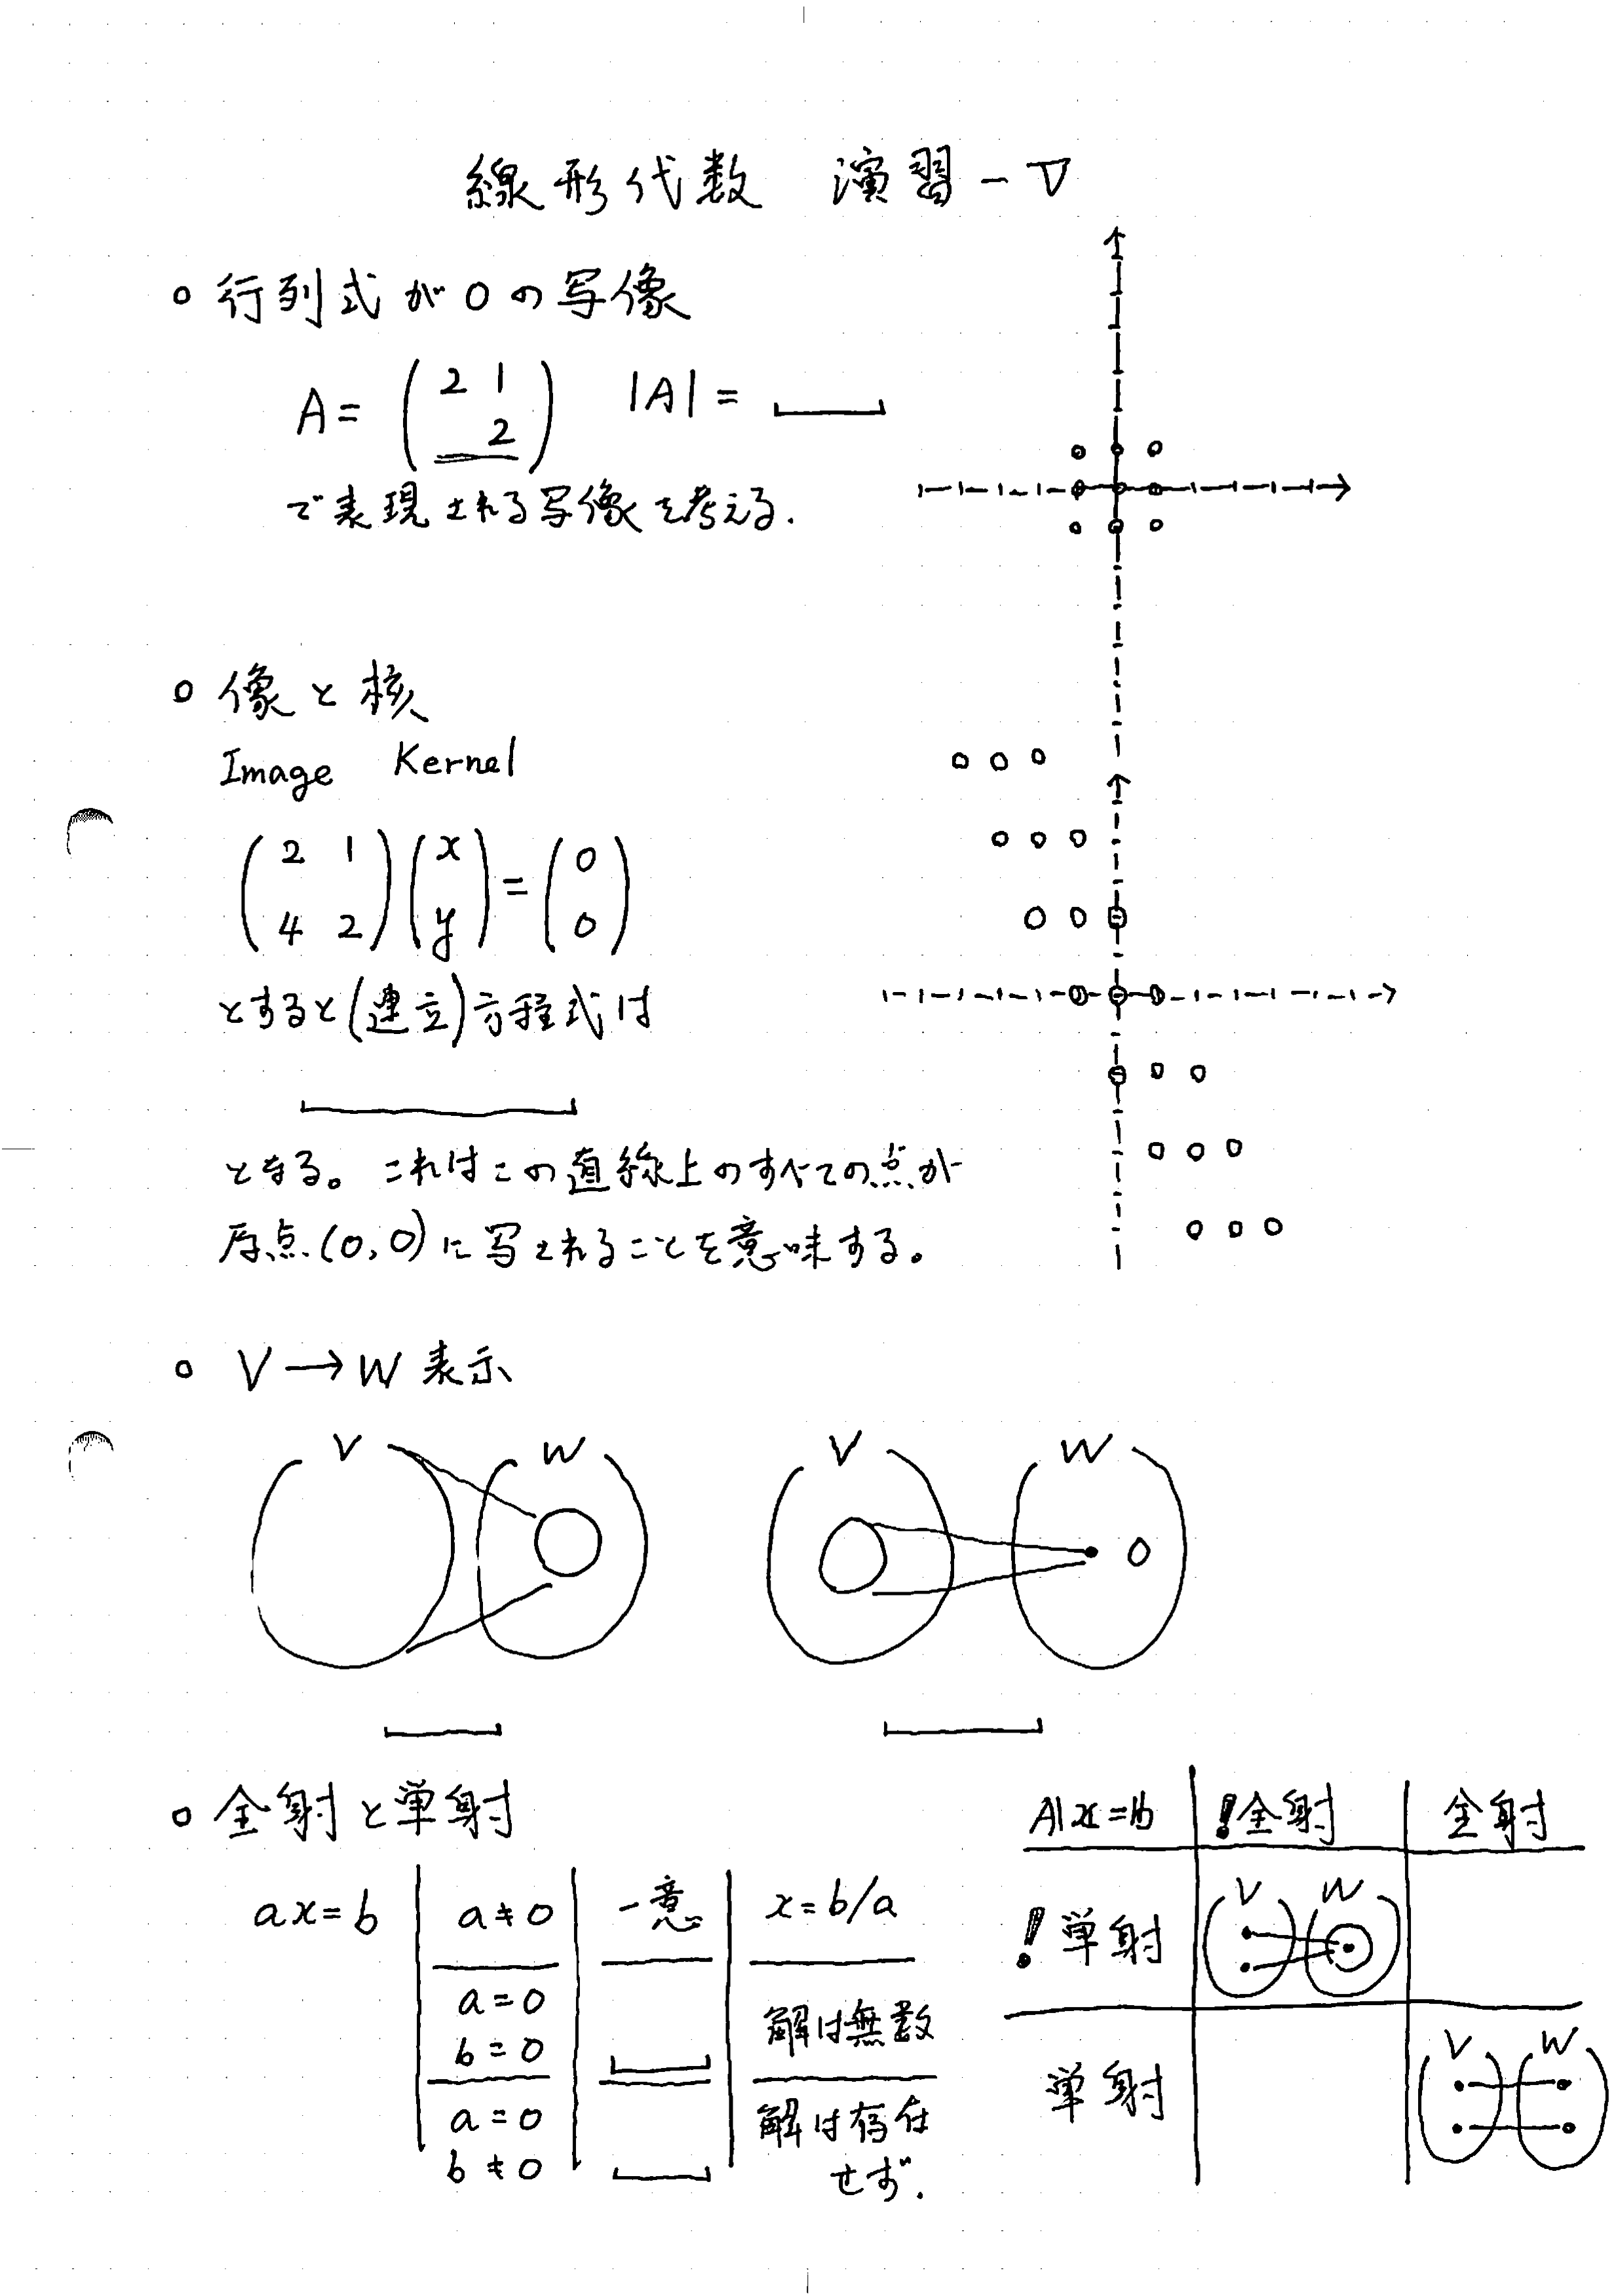 線形代数 演習-V
○ 行列式が0の写像
A = ( 2 1
2 ) |A| =
で表現される写像を考える.
○ 像と核
Image Kernel
( 2 1
4 2 ) ( x
y ) = ( 0
0 )
とすると(連立)方程式は
となる。これはこの直線上のすべての点が
原点(0,0)に写されることを意味する。
○ V→W 表示
V W V W
0
○ 全射と単射
ax=b
a≠0 一意 x=b/a
a=0
b=0 解は無数
a=0
b≠0 解は存在
せず.
Ax=b !全射 全射
!単射 V W
単射 V W